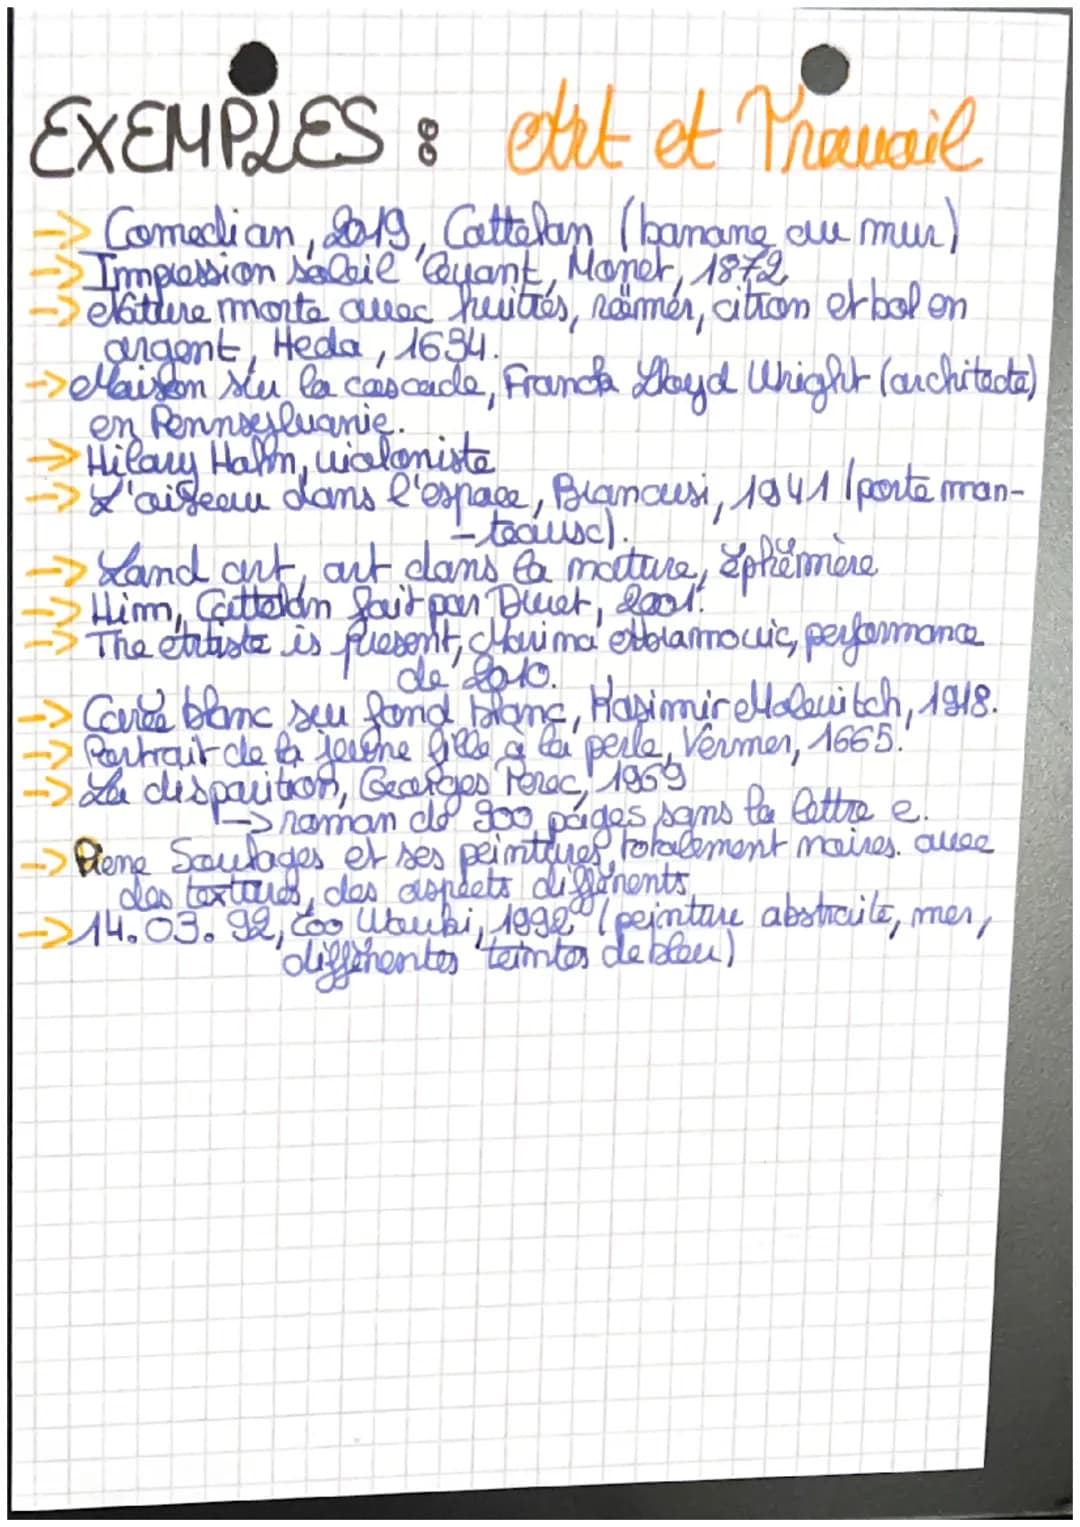 EXEMPLES : Art et Travail
-> Comedian, 2019, Cattelan (banane au mur)
-> Impression soleil levant, Monet, 1872
-> Nature morte avec huitres, römer, citron et bol en
argent, Heda, 1634.
-> Maison sur la cascade, Franck Lloyd Wright (architecte)
en Pennsylvanie.
-> Hilary Hahn, violoniste
-> L'oiseau dans l'espace, Brancusi, 1941 (porte man-
-teaux).
-> Land art, art dans la nature, éphémère
-> Him, Cattelan fait par Druet, 2001.
-> The Artiste is present, Marima Abramovic, performance
de 2010.
-> Carré blanc sur fond blanc, Kasimir Malevitch, 1918.
-> Portrait de la jeune fille à la perle, Vermer, 1665.
-> La disparition, Georges Perec, 1969
-> roman de 300 pages sans la lettre e.
-> Pierre Soulages et ses peintures totalement noires. avec
des textures, des aspects différents
-> 14.03.92, Zoo Wouki, 1992 (peinture abstraite, mer,
différentes teintes de bleu)